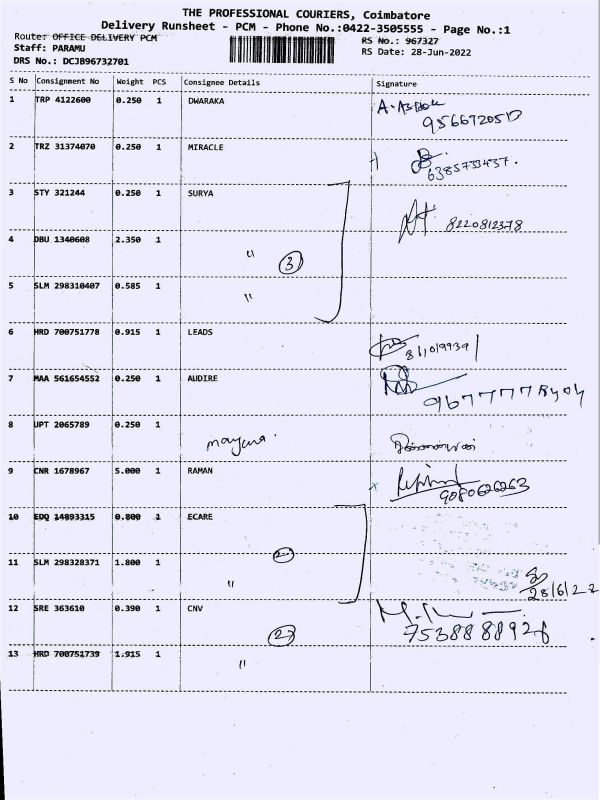 THE PROFESSIONAL COURIERS, Coimbatore
Delivery Runsheet - PCM - Phone No.:0422-3505555 - Page No.:1
Route: OFFICE DELIVERY PCM
RS No.: 967327
Staff: PARAMU
RS Date: 28-Jun-2022
DRS No.: DCJB96732701
S No Consignment No Weight PCS Consignee Details Signature
1 TRP 4122600 0.250 1 DWARAKA
2 TRZ 31374070 0.250 1 MIRACLE
6385733437.
3 STY 321244 0.250 1 SURYA
8220812378
4 DBU 1340608 2.350 1 〃
3
5 SLM 298310407 0.585 1 〃
6 HRD 700751778 0.915 1 LEADS
7 MAA 561654552 0.250 1 AUDIRE
8 UPT 2065789 0.250 1
9 CNR 1678967 5.000 1 RAMAN
9080626263
10 EDQ 14893315 0.800 1 ECARE
11 SLM 298328371 1.800 1 〃
2
28/6/22
12 SRE 363610 0.390 1 CNV
2
13 HRD 700751739 1.915 1 〃